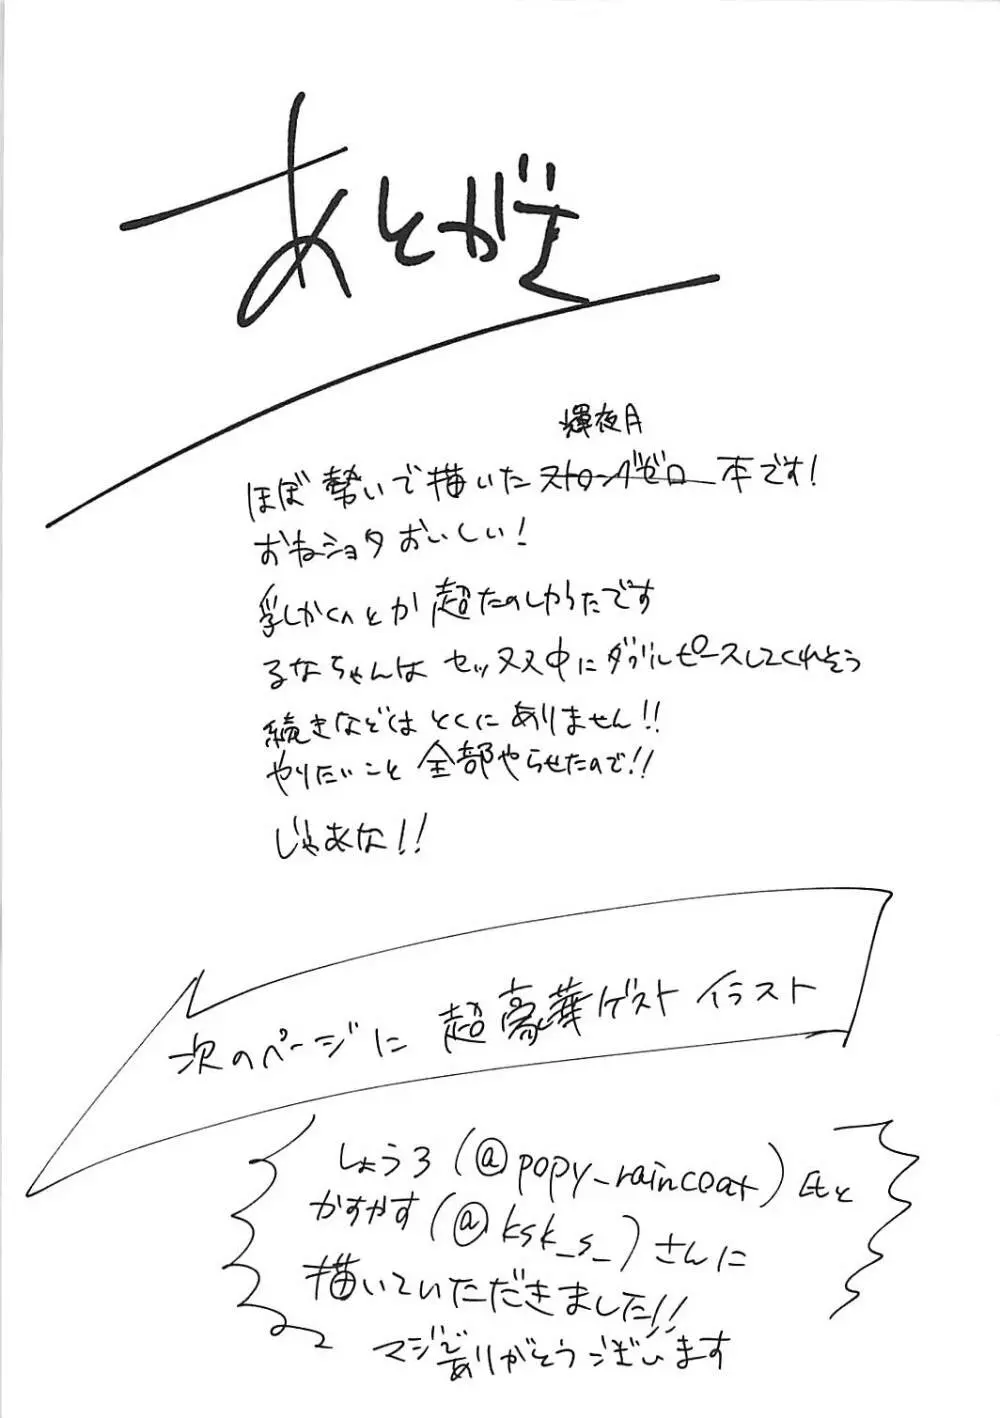 あとがき
輝夜月
ほぼ勢いで描いたストロングゼロ本です!
おねショタおいしい!
乳しかくんとか超たのしかったです
るなちゃんはセックス中にダブルピースしてくれそう
続きなどはとくにありません!!
やりたいこと全部やらせたので!!
じゃあな!!
次のページに超豪華ゲストイラスト
しょうろ(@popy_raincoat)氏と
かすかす(@ksk_s_)さんに
描いていただきました!!
マジでありがとうございます